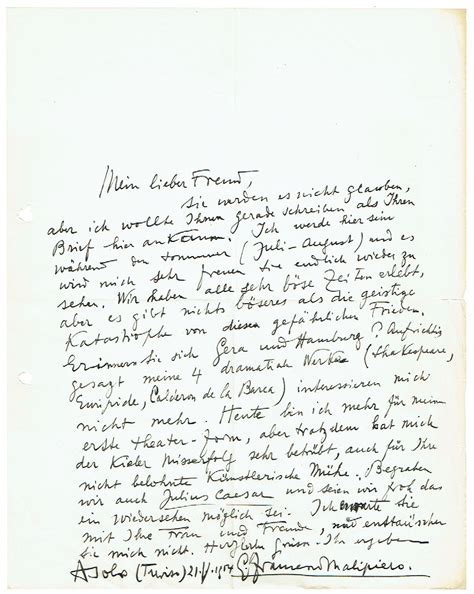 Mein lieber Freund,
Sie werden es nicht glauben,
aber ich wollte Ihnen gerade schreiben als Ihren
Brief hier ankam. Ich werde hier sein
während den Sommer (Juli-August) und es
wird mich sehr freuen Sie endlich wieder zu
sehen. Wir haben alle sehr böse Zeiten erlebt,
aber es gibt nichts böseres als die geistige
Katastrophe von diesen gefährlichen Frieden.
Erinnern Sie sich Gera und Hamburg? Aufrichtig
gesagt meine 4 dramatische Werke (Shakespeare,
Euripide, Calderon de la Barca) interessieren mich
nicht mehr. Heute bin ich mehr für meine
erste theater-form, aber trotzdem hat mich
der Kieler Misserfolg sehr betrübt, auch für Ihre
nicht belohnte Künstlerische Mühe. Begraben
wir auch Julius Caesar und seien wir froh das
ein wiedersehen möglich sei. Ich erwarte Sie
mit Ihre Frau und Freunde, und enttäuschen
Sie mich nicht. Herzliche Grüsse. Ihr ergeben
Asolo (Treviso) 1954 G. Francesco Malipiero.